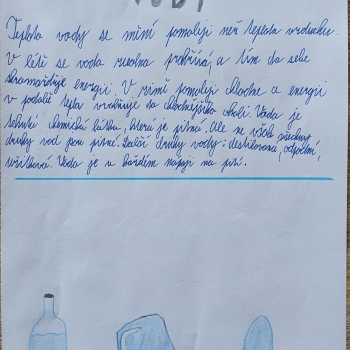 VODY
Teplota vody se mění pomaleji než teplota vzduchu.
V létě se voda zvolna prohřívá a tím do sebe
shromažďuje energii. V zimě pomaleji chladne a energii
v podobě tepla uvolňuje do chladnějšího okolí. Voda je
tekutá chemická látka, která je pitná. Ale ne všechny
druhy vod jsou pitné. Další druhy vody: destilovaná, odpadní,
užitková. Voda je v každém nápoji na pití.